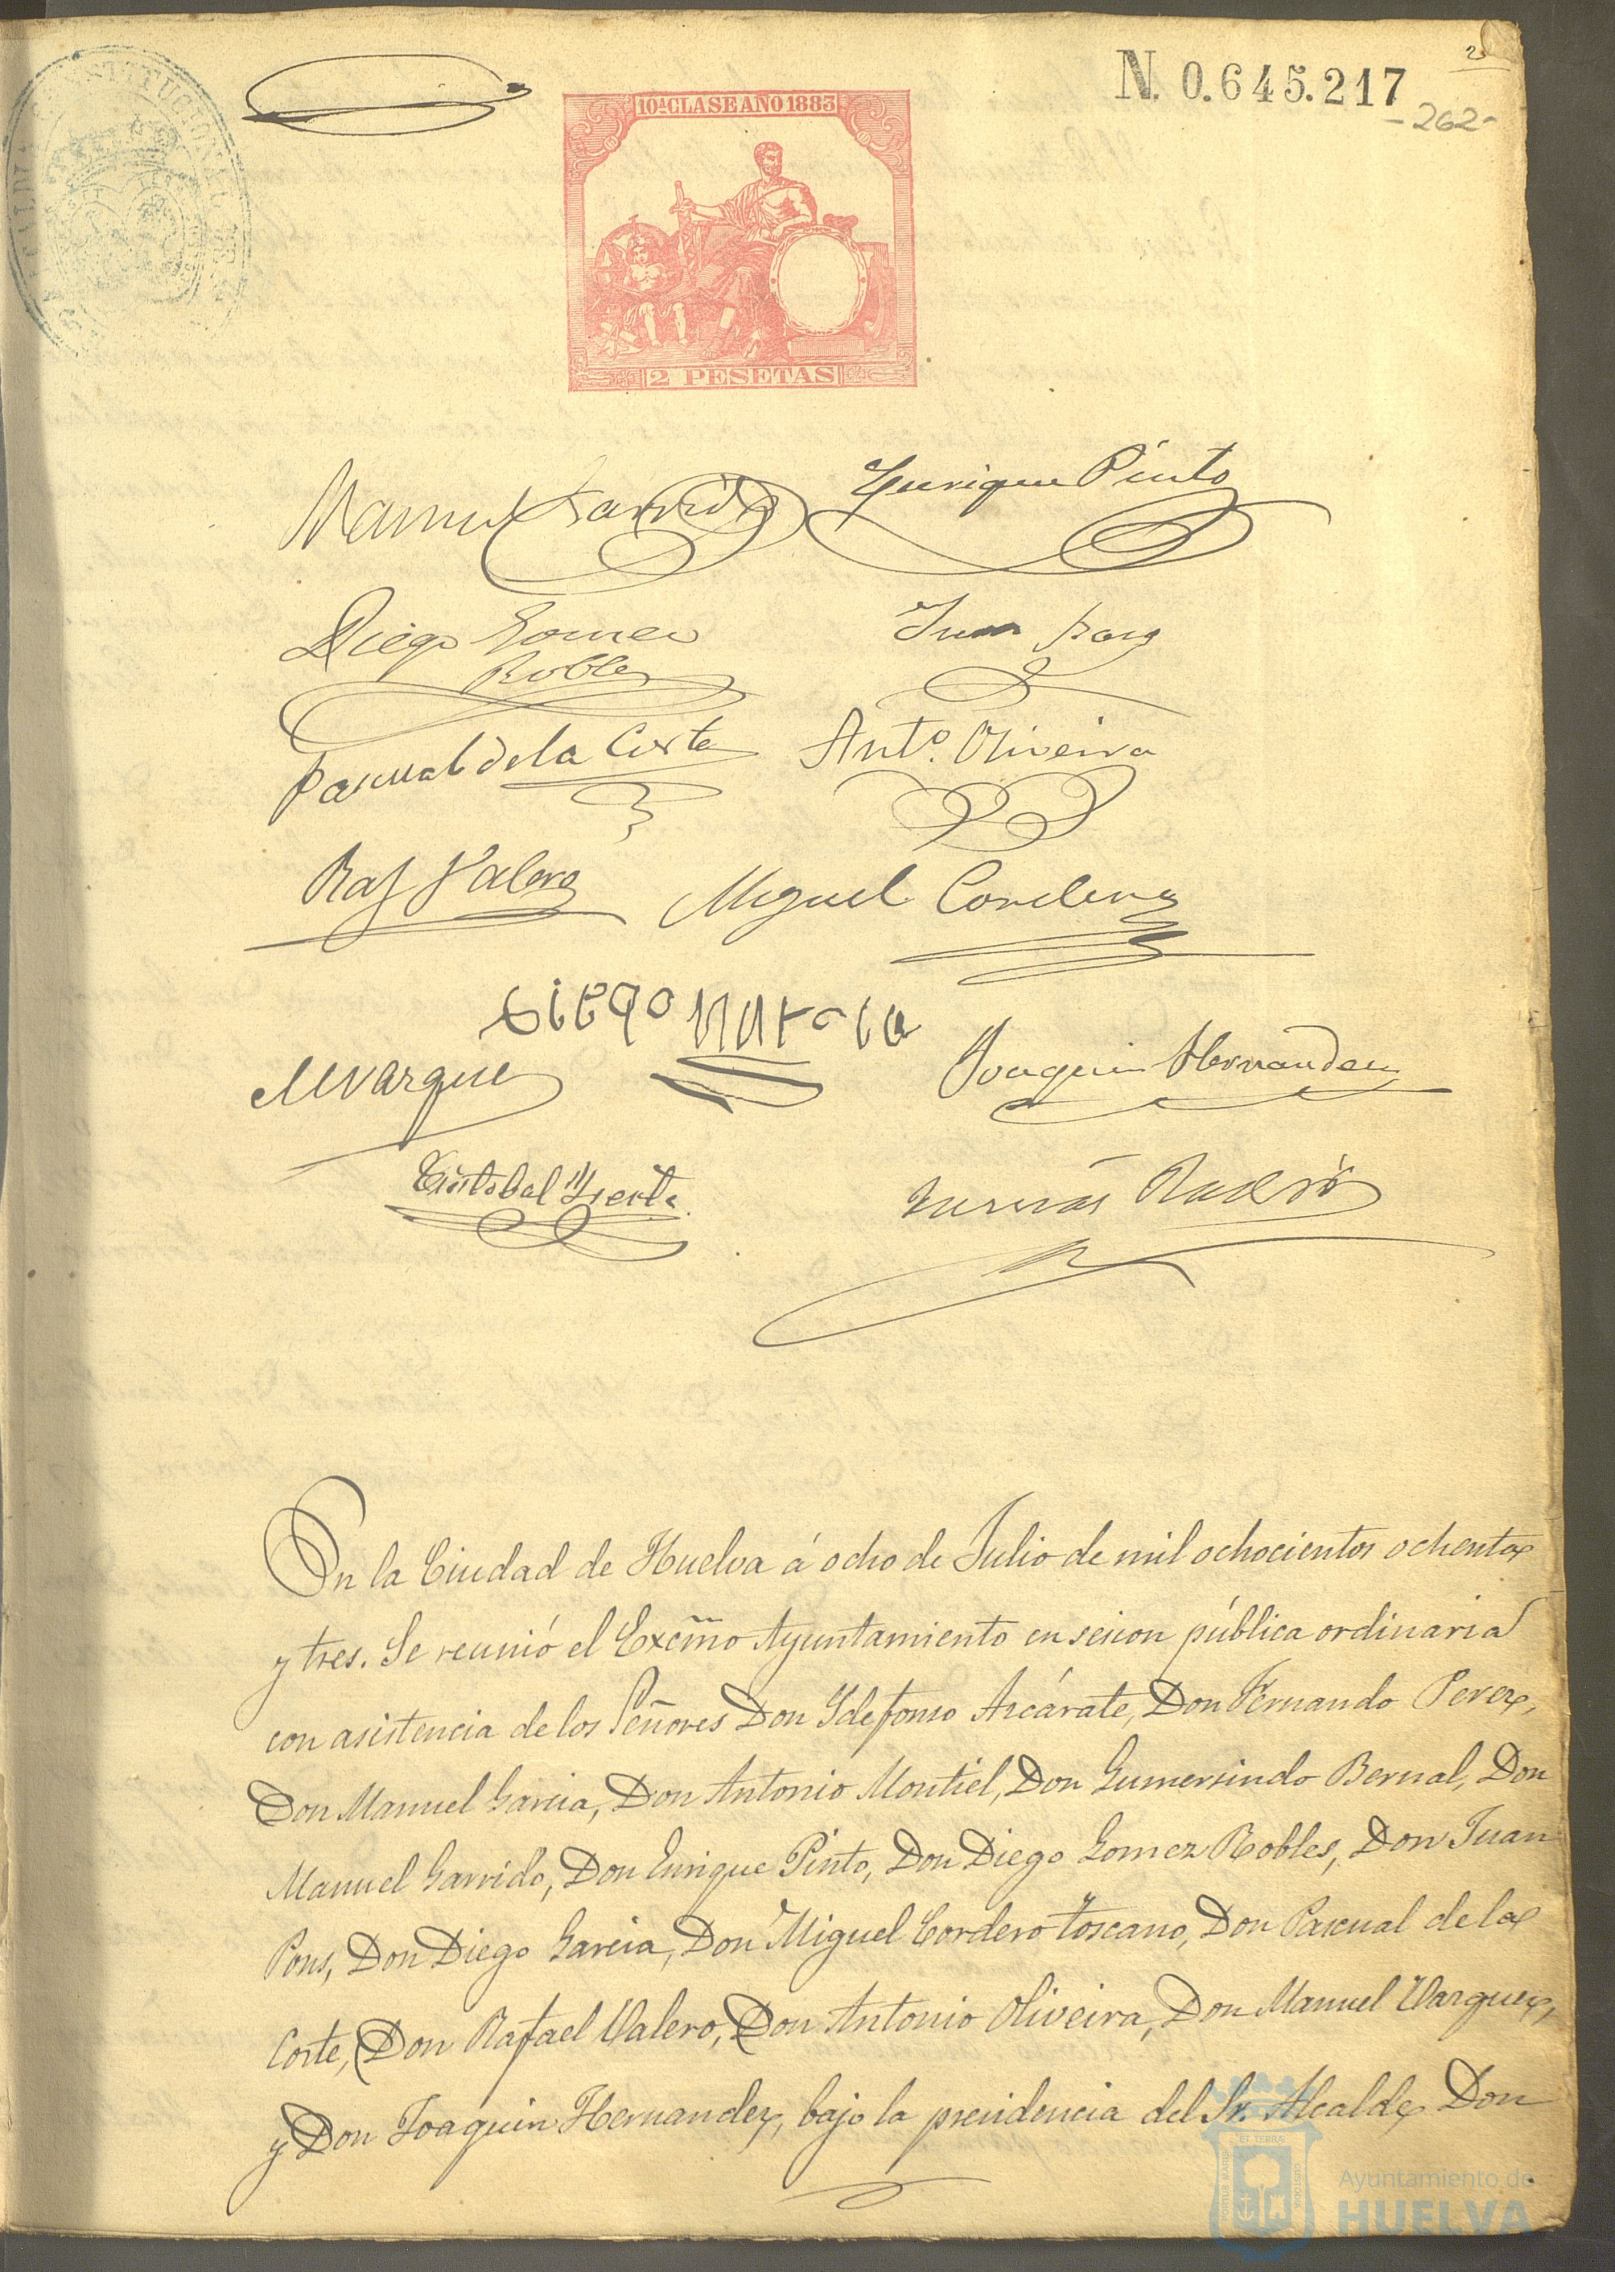 N. 0.645.217
-262-
10ª CLASE AÑO 1883
2 PESETAS
Manuel Garrido Enrique Pinto
Diego Gomez Juan Pons
Robles
Pascual de la Corte Antº. Oliveira
Raf Valero Miguel Cordero
Diego Garcia
MVarguez Joaquin Hernandez
Cristobal
En la Ciudad de Huelva á ocho de Julio de mil ochocientos ochenta
y tres. Se reunió el Excmo Ayuntamiento en sesion pública ordinaria
con asistencia de los Señores Don Ildefonso Azcárate, Don Fernando Perez,
Don Manuel Garcia, Don Antonio Montiel, Don Gumersindo Bernal, Don
Manuel Garrido, Don Enrique Pinto, Don Diego Gomez Robles, Don Juan
Pons, Don Diego Garcia, Don Miguel Cordero Toscano, Don Pascual de la
Corte, Don Rafael Valero, Don Antonio Oliveira, Don Manuel Varguez,
y Don Joaquin Hernandez, bajo la presidencia del Sr. Alcalde Don
Ayuntamiento de
HUELVA